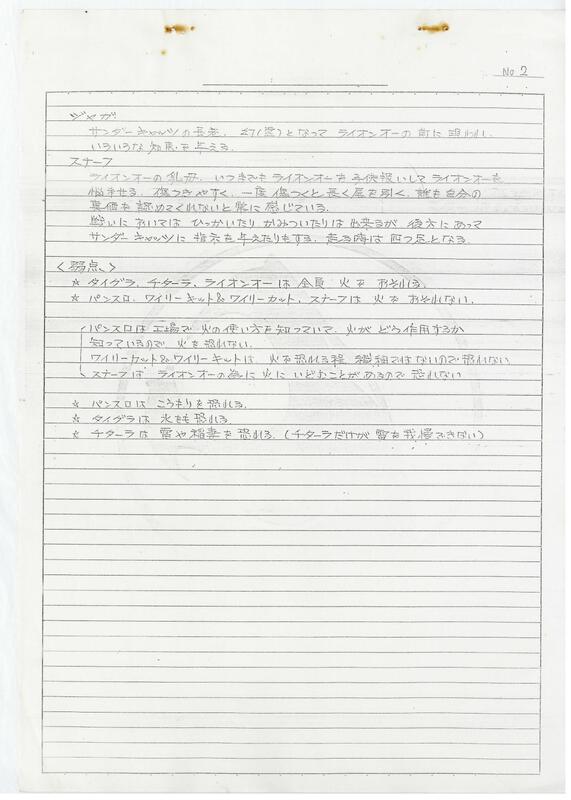 No 2
ジャガ
サンダーキャッツの長老. 幻(霊)となって ライオンオーの前に現われ.
いろいろな知恵を与える.
スナーフ
ライオンオーの乳母. いつまでもライオンオーを子供扱いして ライオンオーを
悩ませる. 傷つきやすく. 一度傷つくと長く尾を引く. 誰も自分の
真価を認めてくれないと常に感じている.
戦いにおいては ひっかいたり かみついたりは出来るが 後方にあって
サンダーキャッツに指示を与えたりもする. 走る時は四つ足となる.
<弱点、>
☆ タイグラ, チターラ, ライオンオーは 全員 火を おそれる.
☆ パンスロ, ワイリーキット&ワイリーカット, スナーフは 火を おそれない.
パンスロは 工場で 火の使い方を知っていて. 火が どう作用するか
知っているので 火を 恐れない.
ワイリーカット&ワイリーキットは 火を恐れる程 繊細ではないので 恐れない.
スナーフは ライオンオーの為に火にいどむことがあるので 恐れない
☆ パンスロは こうもりを恐れる.
☆ タイグラは 水をも 恐れる.
☆ チターラは 雷や稲妻を恐れる. (チターラだけが 雷を我慢できない)